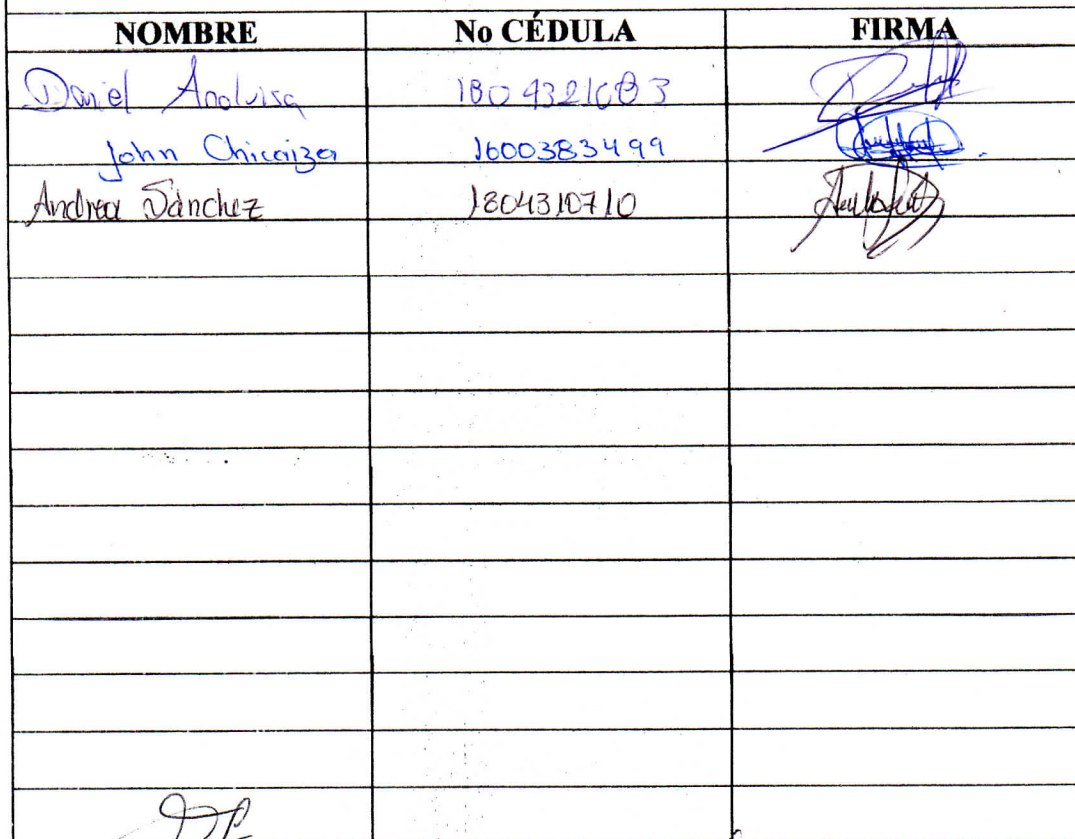 NOMBRE No CÉDULA FIRMA
Daniel Analuisa 1804321083
John Chicaiza 1600383499
Andrea Sánchez 1804310710